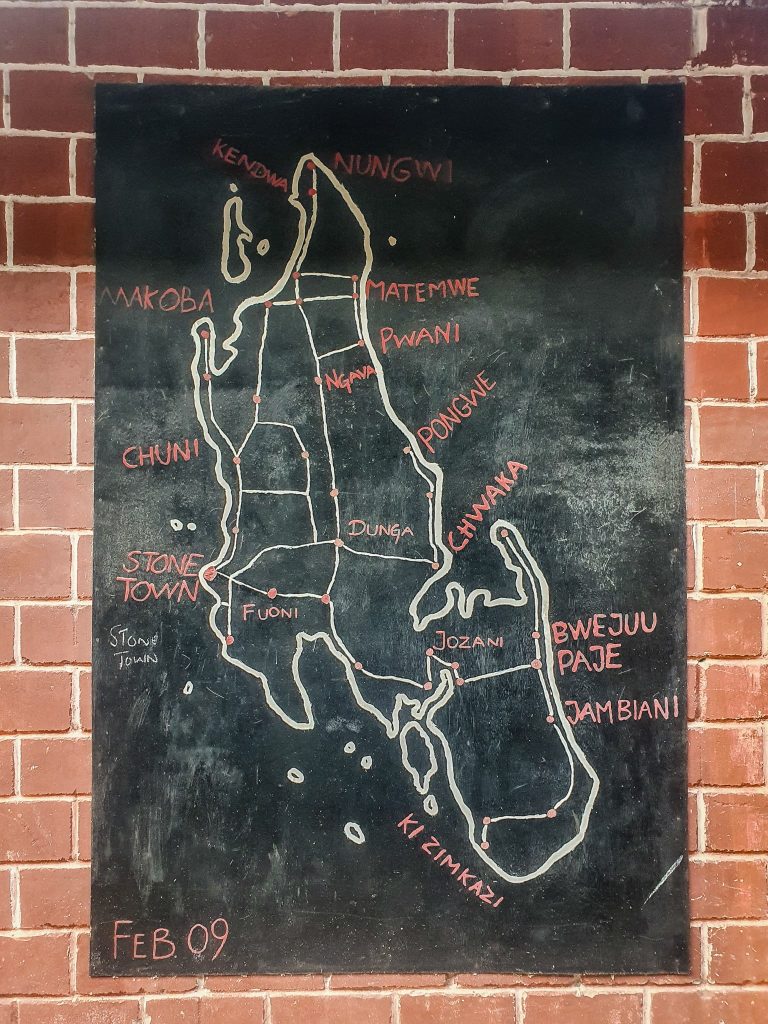 KENDWA
NUNGWI
MAKOBA
MATEMWE
PWANI
NGAVA
PONGWE
CHUNI
CHWAKA
DUNGA
STONE
TOWN
FUONI
STONE
TOWN
JOZANI
BWEJUU
PAJE
JAMBIANI
KIZIMKAZI
FEB. 09